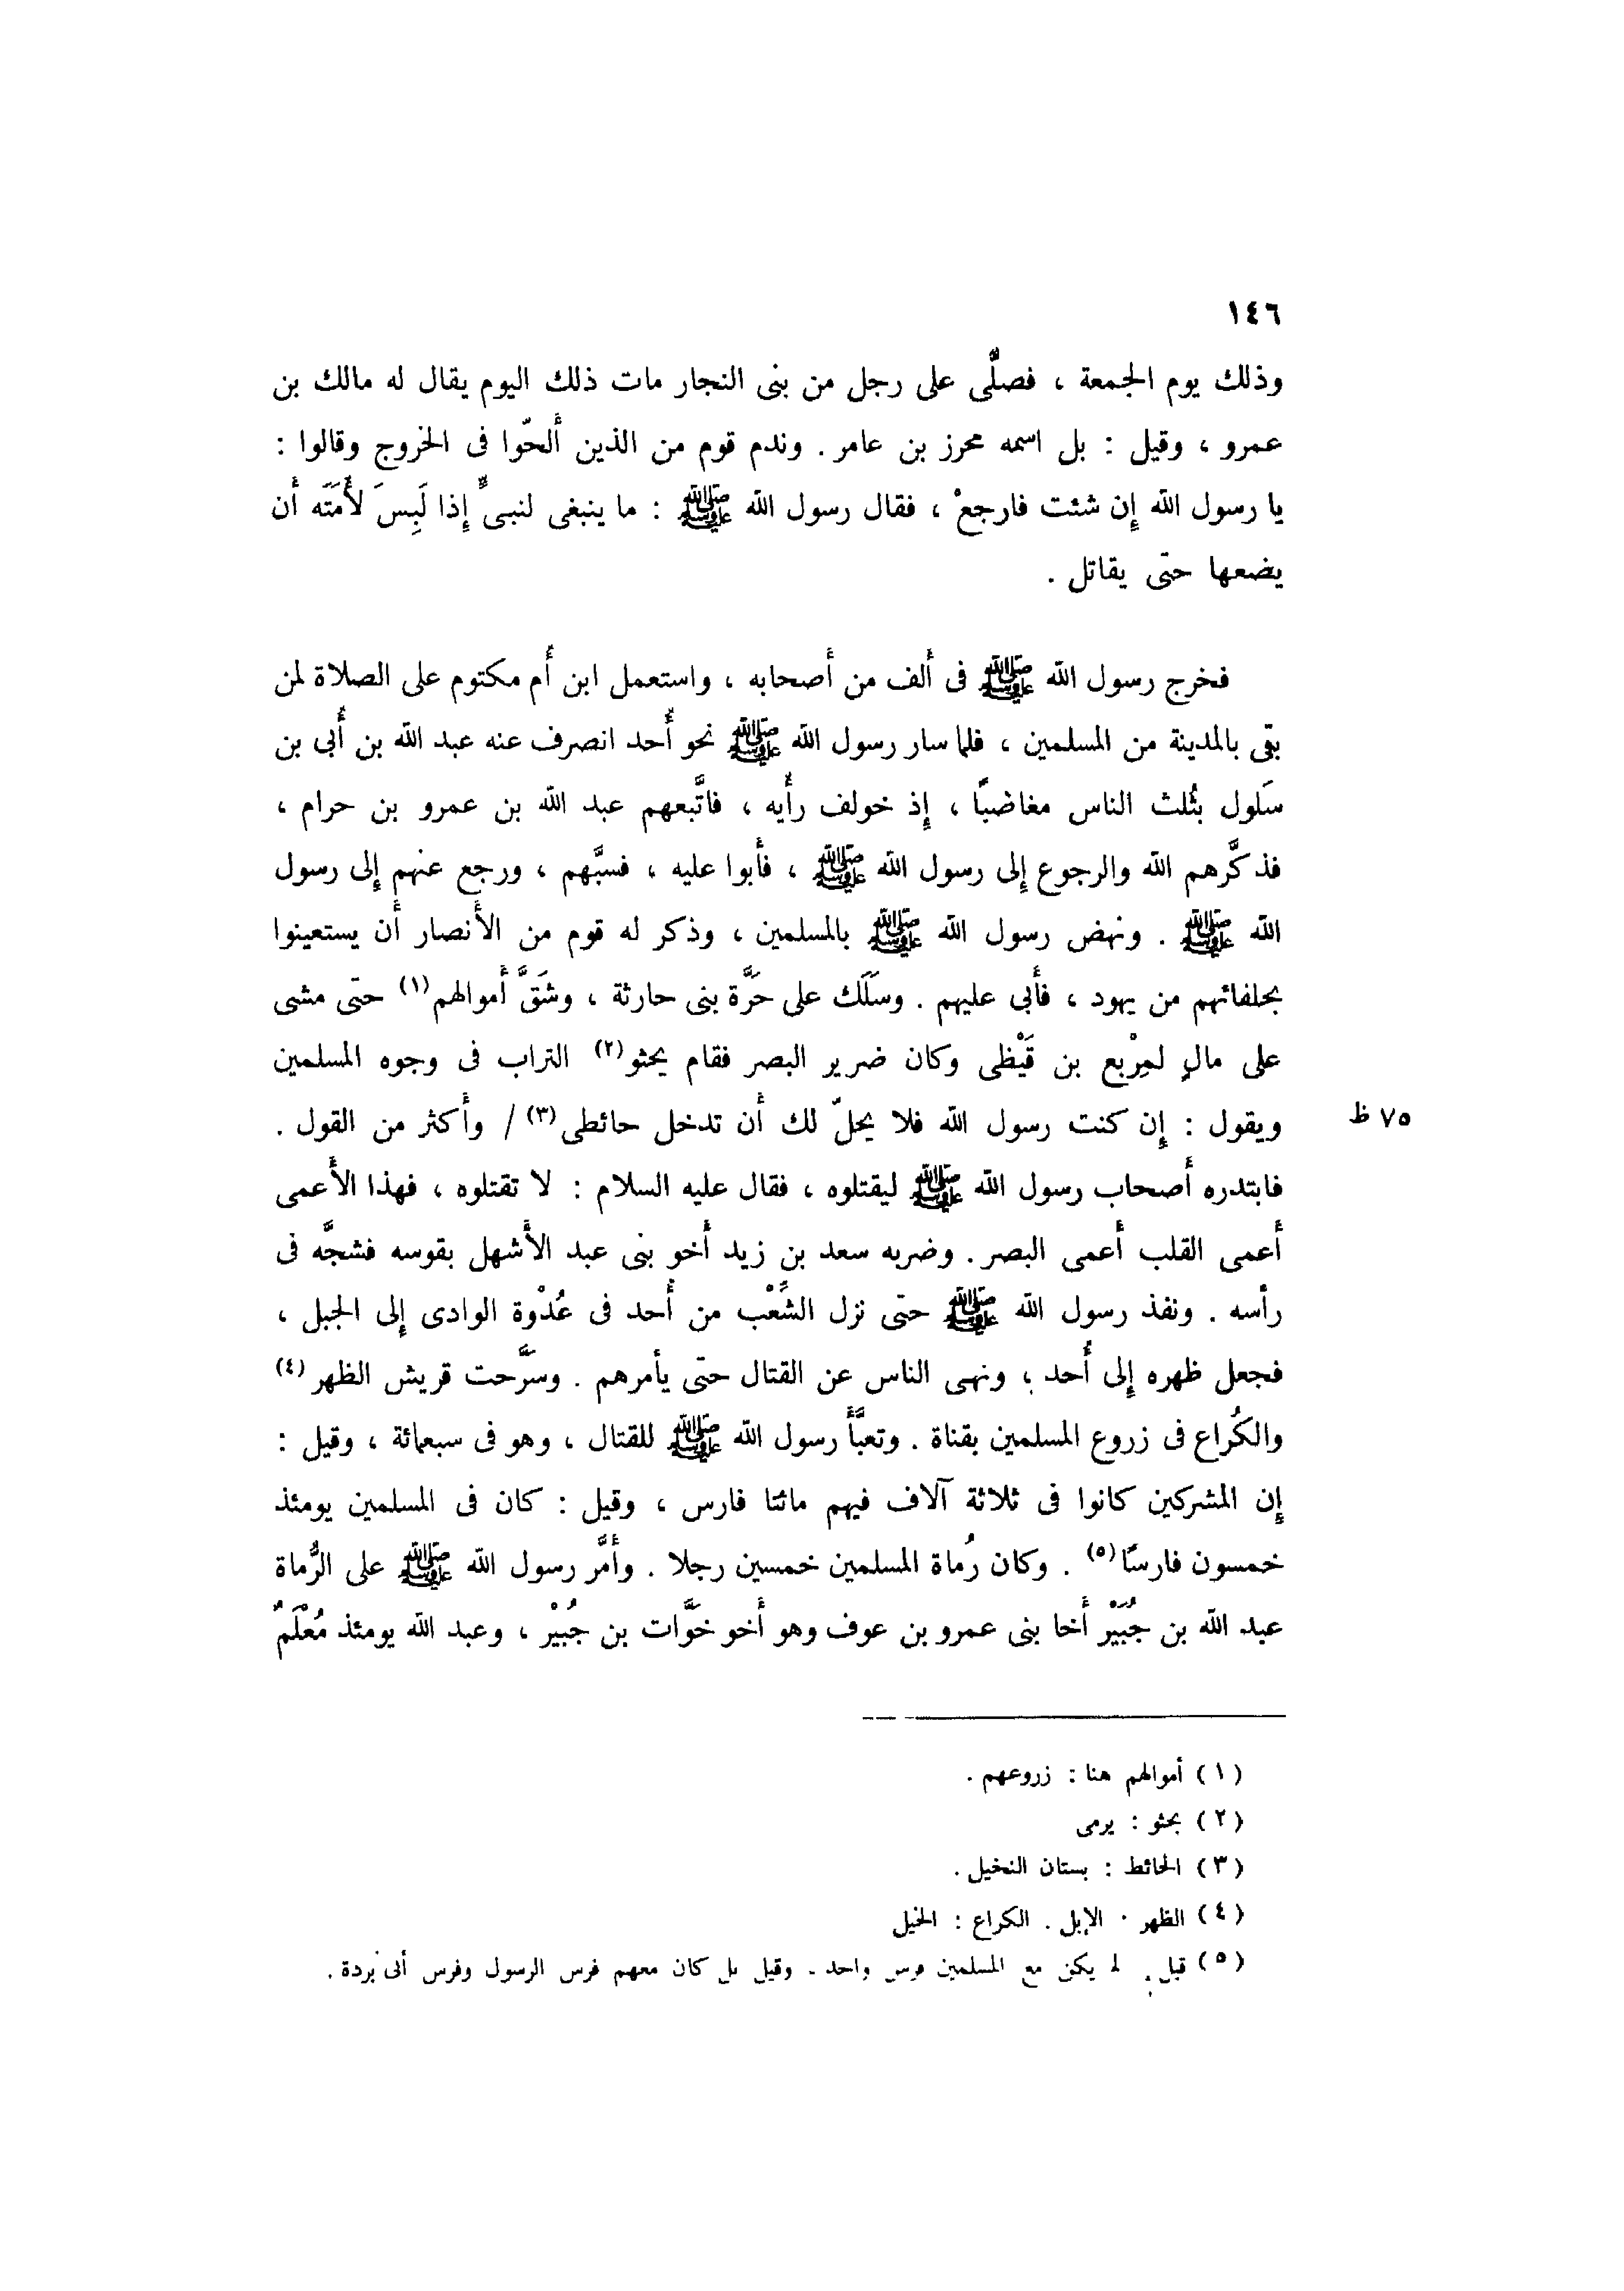 ١٤٦
وذلك يوم الجمعة ، فصلَّى على رجل من بنى النجار مات ذلك اليوم يقال له مالك بن
عمرو ، وقيل : بل اسمه محرز بن عامر . وندم قوم من الذين أَلحّوا فى الخروج وقالوا :
يا رسول الله إِن شئت فارجعْ ، فقال رسول الله ﷺ : ما ينبغى لنبىٍّ إِذا لَبِسَ لأْمَتَه أَن
يضعها حتّى يقاتل .
فخرج رسول الله ﷺ فى أَلف من أَصحابه ، واستعمل ابن أُم مكتوم على الصلاة لمن
بقى بالمدينة من المسلمين ، فلما سار رسول الله ﷺ نحو أُحد انصرف عنه عبد الله بن أُبى بن
سَلول بثُلث الناس مغاضبًا ، إِذ خولف رأْيه ، فاتَّبعهم عبد الله بن عمرو بن حرام ،
فذكَّرهم الله والرجوع إِلى رسول الله ﷺ ، فأَبوا عليه ، فسبَّهم ، ورجع عنهم إِلى رسول
الله ﷺ . ونهض رسول الله ﷺ بالمسلمين ، وذكر له قوم من الأَنصار أَن يستعينوا
بحلفائهم من يهود ، فأَبى عليهم . وسَلَك على حَرَّة بنى حارثة ، وشَقَّ أَموالهم(١) حتّى مشى
على مالٍ لمِرْبع بن قَيْظى وكان ضرير البصر فقام يحثو(٢) التراب فى وجوه المسلمين
ويقول : إِن كنت رسول الله فلا يحلّ لك أَن تدخل حائطى(٣) / وأَكثر من القول . ٧٥ ظ
فابتدره أَصحاب رسول الله ﷺ ليقتلوه ، فقال عليه السلام : لا تقتلوه ، فهذا الأَعمى
أَعمى القلب أَعمى البصر . وضربه سعد بن زيد أَخو بنى عبد الأَشهل بقوسه فشجَّه فى
رأسه . ونفذ رسول الله ﷺ حتّى نزل الشِّعْب من أُحد فى عُدْوة الوادى إِلى الجبل ،
فجعل ظهره إِلى أُحد ، ونهى الناس عن القتال حتّى يأمرهم . وسَرَّحت قريش الظهر(٤)
والكُراع فى زروع المسلمين بقناة . وتعبَّأَ رسول الله ﷺ للقتال ، وهو فى سبعمائة ، وقيل :
إِن المشركين كانوا فى ثلاثة آلاف فيهم مائتا فارس ، وقيل : كان فى المسلمين يومئذ
خمسون فارسًا(٥) . وكان رُماة المسلمين خمسين رجلا . وأَمَّر رسول الله ﷺ على الرُّماة
عبد الله بن جُبَيْر أَخا بنى عمرو بن عوف وهو أَخو خَوَّات بن جُبيْر ، وعبد الله يومئذ مُعْلَمٌ
(١) أموالهم هنا : زروعهم .
(٢) يحثو : يرمى
(٣) الحائط : بستان النخيل .
(٤) الظهر : الإبل . الكراع : الخيل
(٥) قيل : لم يكن مع المسلمين فرس واحد . وقيل بل كان معهم فرس الرسول وفرس أبى بردة .